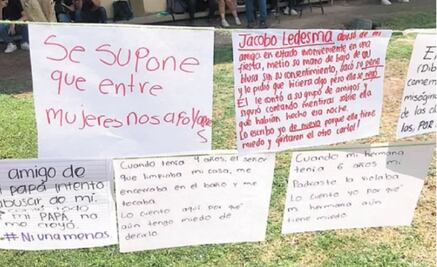 Se supone
que entre
mujeres nos apoyamos
Jacobo Ledesma abusó de mi
amiga en estado inconveniente en una
fiesta, metio su mano de bajo de su
blusa sin su consentimiento, sacó su pene
y le pidió que hiciera algo pero ella se negó
El le contó a su grupo de amigos y
siguió contando mentiras sobre ella
que habían hecho esa noche.
Lo escribo yo de nuevo porque ella tiene
miedo y quitaron el otro cartel!
comen
misógin
de las
los, POR
amigo de
papá intentó
abusar de mi.
mi PAPÁ, no
me creyó.
#Ni una menos
Cuando tenía 4 años, el señor
que limpiaba mi casa, me
encerraba en el baño y me
tocaba
Lo cuento aquí por qué
aún tengo miedo de
decirlo
Cuando mi hermana
tenía 6 años mi
Padrastro la violaba
Lo cuento yo por qué
mi hermana aún
tiene miedo